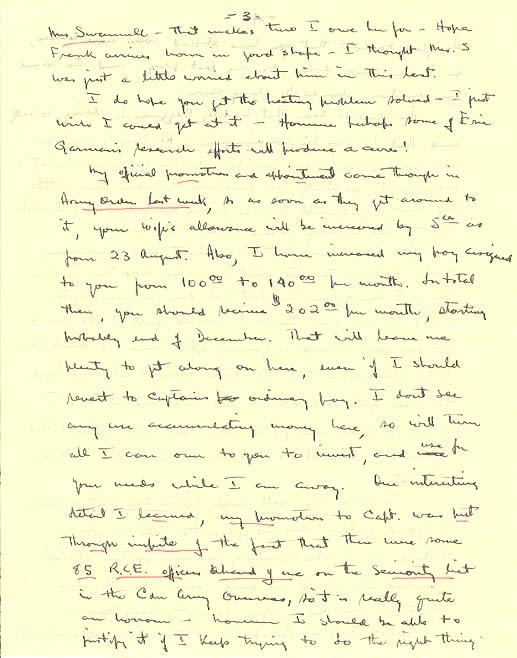 - 3 -
Mrs Swannell - That makes two I owe her for - Hope
Frank arrives home in good shape - I thought Mrs. S
was just a little worried about him in this last.
I do hope you get the heating problem solved - I just
wish I could get at it - However perhaps some of Eric
Garman's research efforts will produce a cure!
My official promotion and appointment came through in
Army Orders last week, so as soon as they get around to
it, your wife's allowance will be increased by 5 00 as
from 23 August. Also, I have increased my pay assigned
to you from 100 00 to 140 00 per month. In total
then, you should receive $202 00 per month, starting
probably end of December. That will leave me
plenty to get along on here, even if I should
revert to Captains ordinary pay. I dont see
any use accumulating money here, so will turn
all I can over to you to invest, and use for
your needs while I am away. One interesting
detail I learned, my promotion to Capt. was put
through inspite of the fact that there were some
85 R.C.E. officers ahead of me on the Seniority list
in the Cdn Army Overseas, so it is really quite
an honour - however I should be able to
justify it if I keep trying to do the right thing.